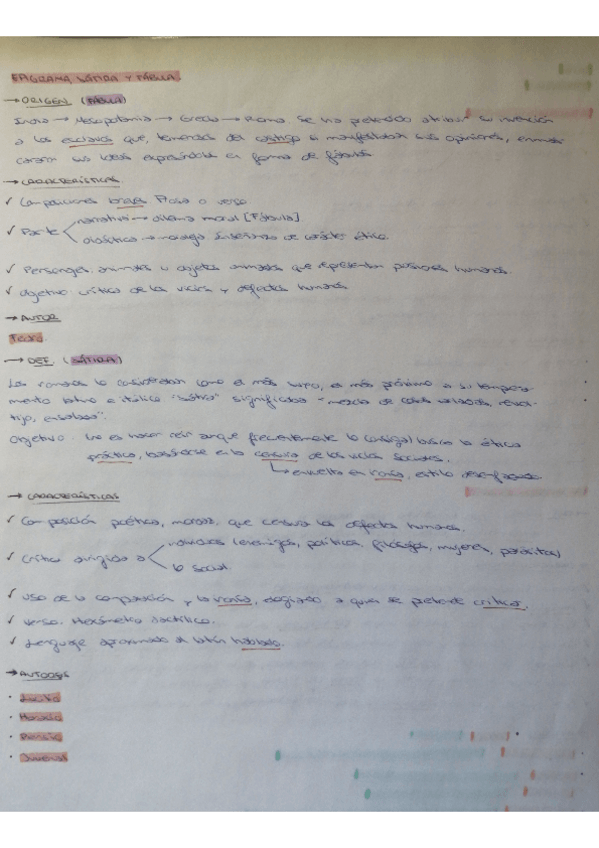 EPIGRAMA, SÁTIRA Y FÁBULA.
→ ORIGEN (FÁBULA)
India → Mesopotamia → Grecia → Roma. Se ha pretendido atribuir su invención
a los esclavos que, temerosos del castigo si manifestaban sus opiniones,
sus ideas expresándolas en forma de fábulas
→ CARACTERÍSTICAS
✓ Composiciones breves Prosa o verso
✓ Parte narrativa → dilema moral [Fábula].
didáctica → moraleja Enseñanza de carácter ético.
✓ Personajes: animales u objetos animados que representan pasiones humanas.
✓ Objetivo: crítica de los vicios y defectos humanos
→ AUTOR
Fedro.
→ DEF. (SÁTIRA)
Los romanos la consideraban como el más suyo, el más próximo a su tempera-
mento latino e itálico "sátira" significaba "mezcla de cosas variadas, revol-
tijo, ensalada".
Objetivo: (no es hacer reír aunque frecuentemente lo consiga) busca la ética
práctica, basándose en la censura de los vicios sociales.
↳ envuelta en ironía, estilo desenfadado
→ CARACTERÍSTICAS
✓ Composición poética, mordaz, que censura los defectos humanos.
✓ Crítica dirigida a individuos (enemigos, políticos, filósofos, mujeres, parásitos)
lo social.
✓ Uso de la comparación y la ironía, elogiando a quien se pretende criticar.
✓ Verso: Hexámetro dactílico.
✓ Lenguaje aproximado al latín hablado.
→ AUTORES
· Lucilio
· Horacio
· Persio
· Juvenal